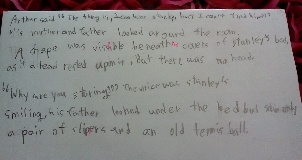 Arthur said "The thing is, I can hear Stanley but I can't find him"
His mother and father looked around the room
A shape was visible beneath the covers of Stanley's bed
as if a head rested upon it. But there was no head.
"Why are you staring??" The voice was Stanley's
smiling, his father looked under the bed but saw only
a pair of slippers and an old tennis ball